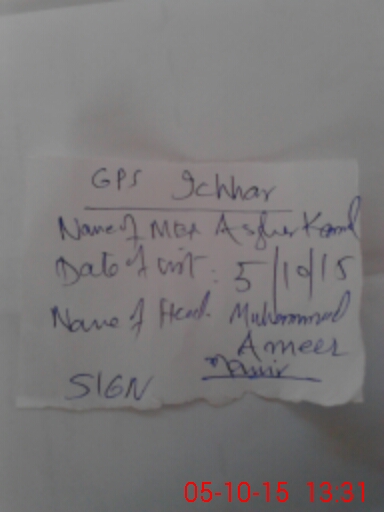 GPS Ichhar
Name of MEA Asghar Kamal
Date of visit: 5/10/15
Name of Head. Muhammad
Ameer
SIGN
05-10-15 13:31